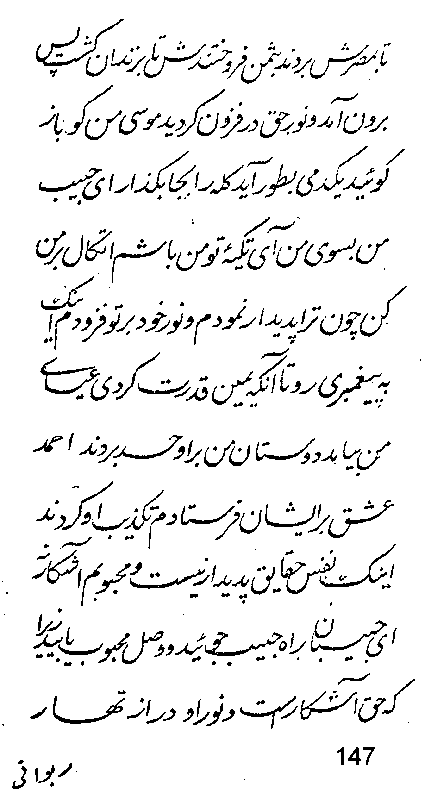 تا بمصرش بردند بثمن فروختندش تا بزندان کشت پس
برون آمد و نور حق در فزون گردید موسی من کو باز
گوئید یکدمی بطور آید کله را بجا بگذار ای حبیب
من بسوی من آی تکیهٔ تو من باشم اتکال بر من
کن چون ترا پدیدار نمودم و نور خود بر تو فزودم اینک
به پیغمبری رو تا آنکه یمین قدرت کردی عیسای
من بیامد دوستان من بر او حسد بردند احمد
عشق برایشان فرستادم تکذیب او کردند
اینک نفس حقایق پدیدار نیست و محبوبم آشکار نه
ای حبیبان براه حبیب جوئید و وصل محبوب یابید زیرا
که حق آشکار است و نور او در ازتهار
147